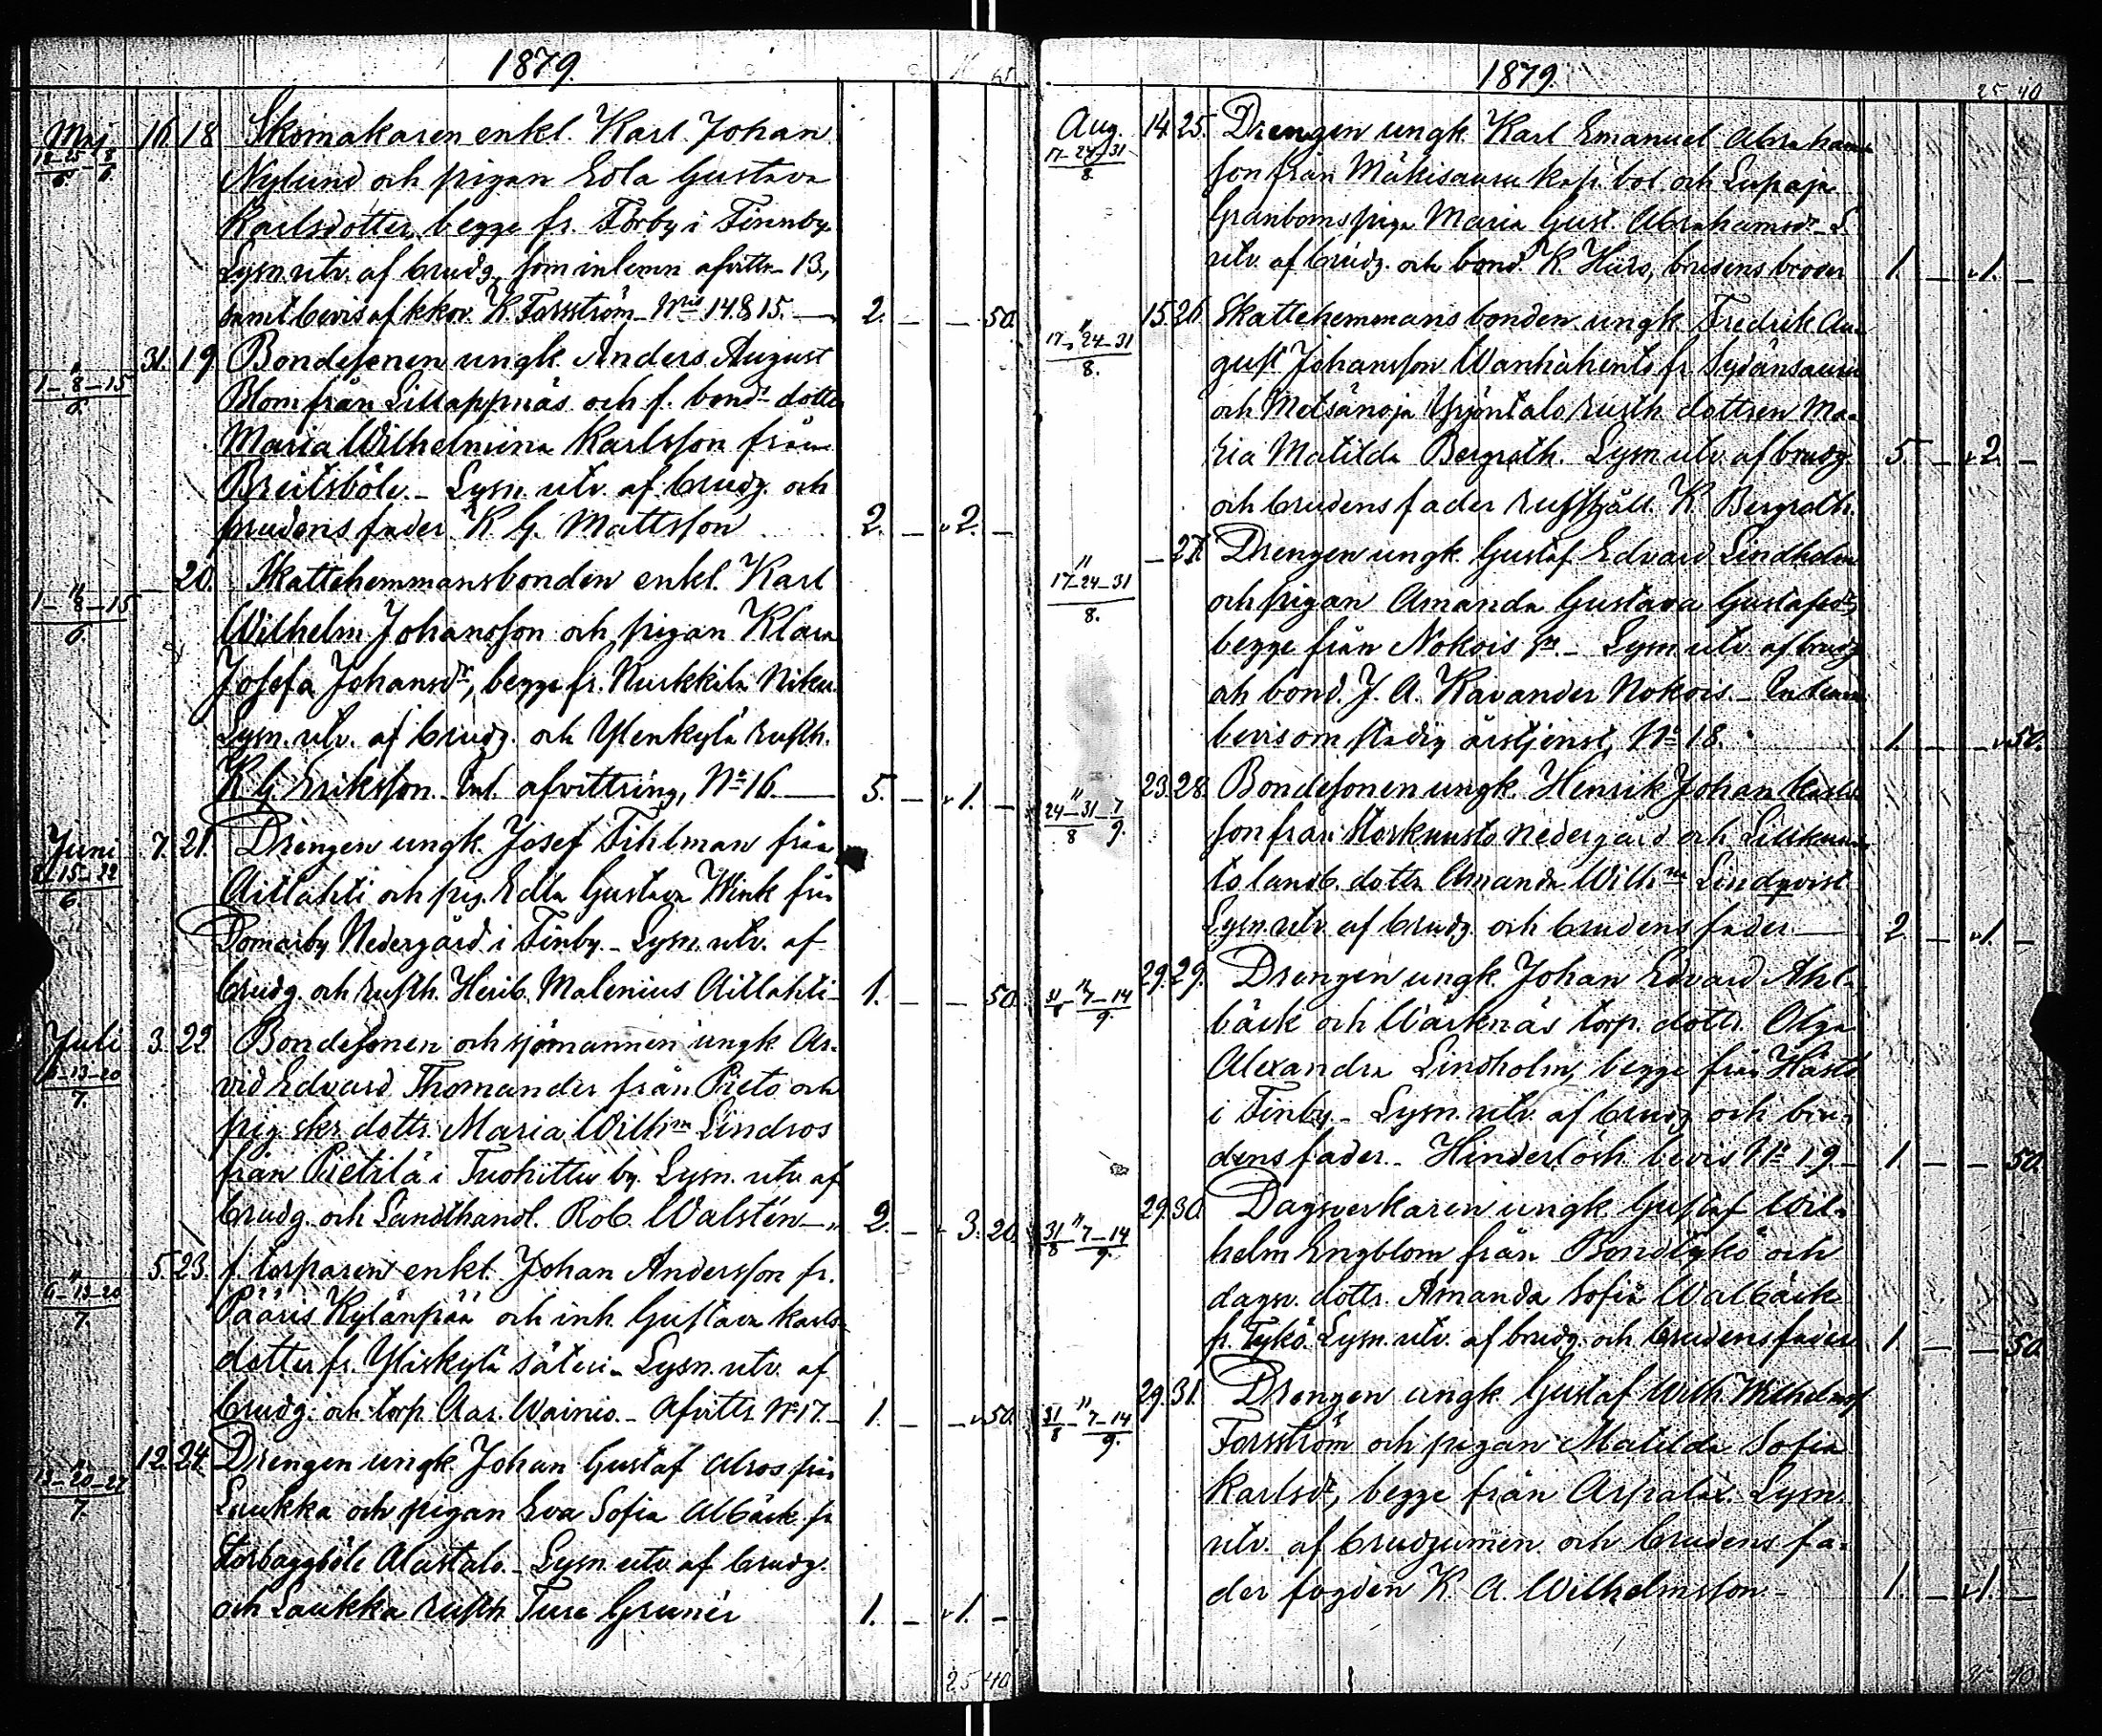 1879.
Maj 16. 18 Skomakaren enkl. Karl Johan
18-25/5 - 8/6 Nylund och pigan Eola Gustava
Karlsdotter, begge fr. Förby i Finnby.
Lysn. utv. af brudg., som inlemn afvittr. 13,
samt bevis af kkov. K. Forsström, N:is 14 & 15. — 2. — — 50.
" 31. 19 Bondesonen ungk. Anders August
1-8-15/6. Blom från Lillappnäs och f. bond. dotter
Maria Wilhelmina Karlsson från
Breitsböle. - Lysn. utv. af brudg. och
brudens fader K G. Mattsson 2. — 2. —
" — 20. Skattehemmansbonden enkl. Karl
1-8-15/6. Wilhelm Johansson och pigan Klara
Josefa Johansdr, begge fr. Kurkkila Niku.
Lysn. utv. af brudg. och Ylenkylä rusth.
K G. Eriksson. Inl. afvittring, No 16. — 5. — 1. —
Juni 7. 21. Drengen ungk. Josef Fihlman från
8-15-22/6 Aitlahti och pig. Edla Gustava Wink från
Domarby Nedergård i Finby. - Lysn. utv. af
brudg. och rusth. Herib. Malenius Aitlahti - 1. — — 50.
Juli 3. 22 Bondesonen och sjömannen ungk. Ar-
6-13-20/7. vid Edvard Thomander från Pieto och
pig. skr. dottr. Maria Wilhm Lindros
från Pietilä i Tuohittu by. Lysn. utv. af
brudg. och Landthandl. Rob. Walstén — 2. — 3. 20.
" 5. 23. f. torparen enkl. Johan Andersson fr.
6-13-20/7. Pääris Kylänpää och inh. Gustava Karls-
dotter fr. Yliskylä säteri - Lysn. utv. af
brudg. och torp. Aar. Wainio. - Afvittr. No 17. - 1. — — 50.
" 12. 24. Drengen ungk. Johan Gustaf Alros från
13-20-27/7. Laukka och pigan Eva Sofia Albäck fr
Storbaggböle Alastalo. - Lysn. utv. af brudg.
och Laukka rusth. Ture Grunér 1. — 1. —
25 40
1879.
25 40
Aug. 14. 25. Drengen ungk. Karl Emanuel Abraham-
17-24-31/8 son från Mäkisauru kapt. bol. och Lupaja
Granboms piga Maria Gust. Abrahamsdr. - L.
utv. af brudg. och bond. K. Hurs, brudens broder 1. — 1. —
" 15. 26 Skattehemmansbonden ungk. Fredrik Au-
17-24-31/8. gust Johansson Wanhahento fr. Sydänsauru
och Metsänoja Yrjöntalo rusth. dottren Ma-
ria Matilda Bergroth. Lysn. utv. af brudg. 5. — 2. —
och brudens fader rusthåll. K. Bergroth.
" — 27. Drengen ungk. Gustaf Edvard Lindholm
17-24-31/8. och pigan Amanda Gustava Gustafsdr,
begge från Nokois gr. - Lysn. utv. af brudg
och bond. J. A. Kavander Nokois. -
bevis om stadig årstjenst, No 18. 1. — — 50.
" 23. 28. Bondesonen ungk. Henrik Johan Karls-
24-31/8 - 7/9. son från Storkuusto Nedergård och Lillkuus-
to landb. dottr Amanda Wilhm Lindqvist
Lysn. utv. af brudg. och brudens fader — 2. — 1. —
" 29. 29. Drengen ungk. Johan Edvard Ahl-
31/8 - 7-14/9. bäck och Wäcknäs torp. dottr. Olga
Alexandra Lindholm, begge från Hästö
i Finby. - Lysn. utv. af brudg och bru-
dens fader. - Hinderlösh. bevis No 19. - 1. — — 50.
" 29. 30. Dagsverkaren ungk. Gustaf Wil-
31/8 - 7-14/9. helm Engblom från Bondtykö och
dagsv. dottr. Amanda Sofia Walbäck
fr. Tykö. Lysn. utv. af brudg. och brudens fader 1. — — 50
" 29. 31. Drengen ungk. Gustaf Wilh. Wilhelmsf
31/8 - 7-14/9. Forsström och pigan Matilda Sofia
Karlsdr, begge från Arpalax. Lysn.
utv. af brudgumen och brudens fa-
der fogden K. A. Wilhelmsson. - 1. — 1. —